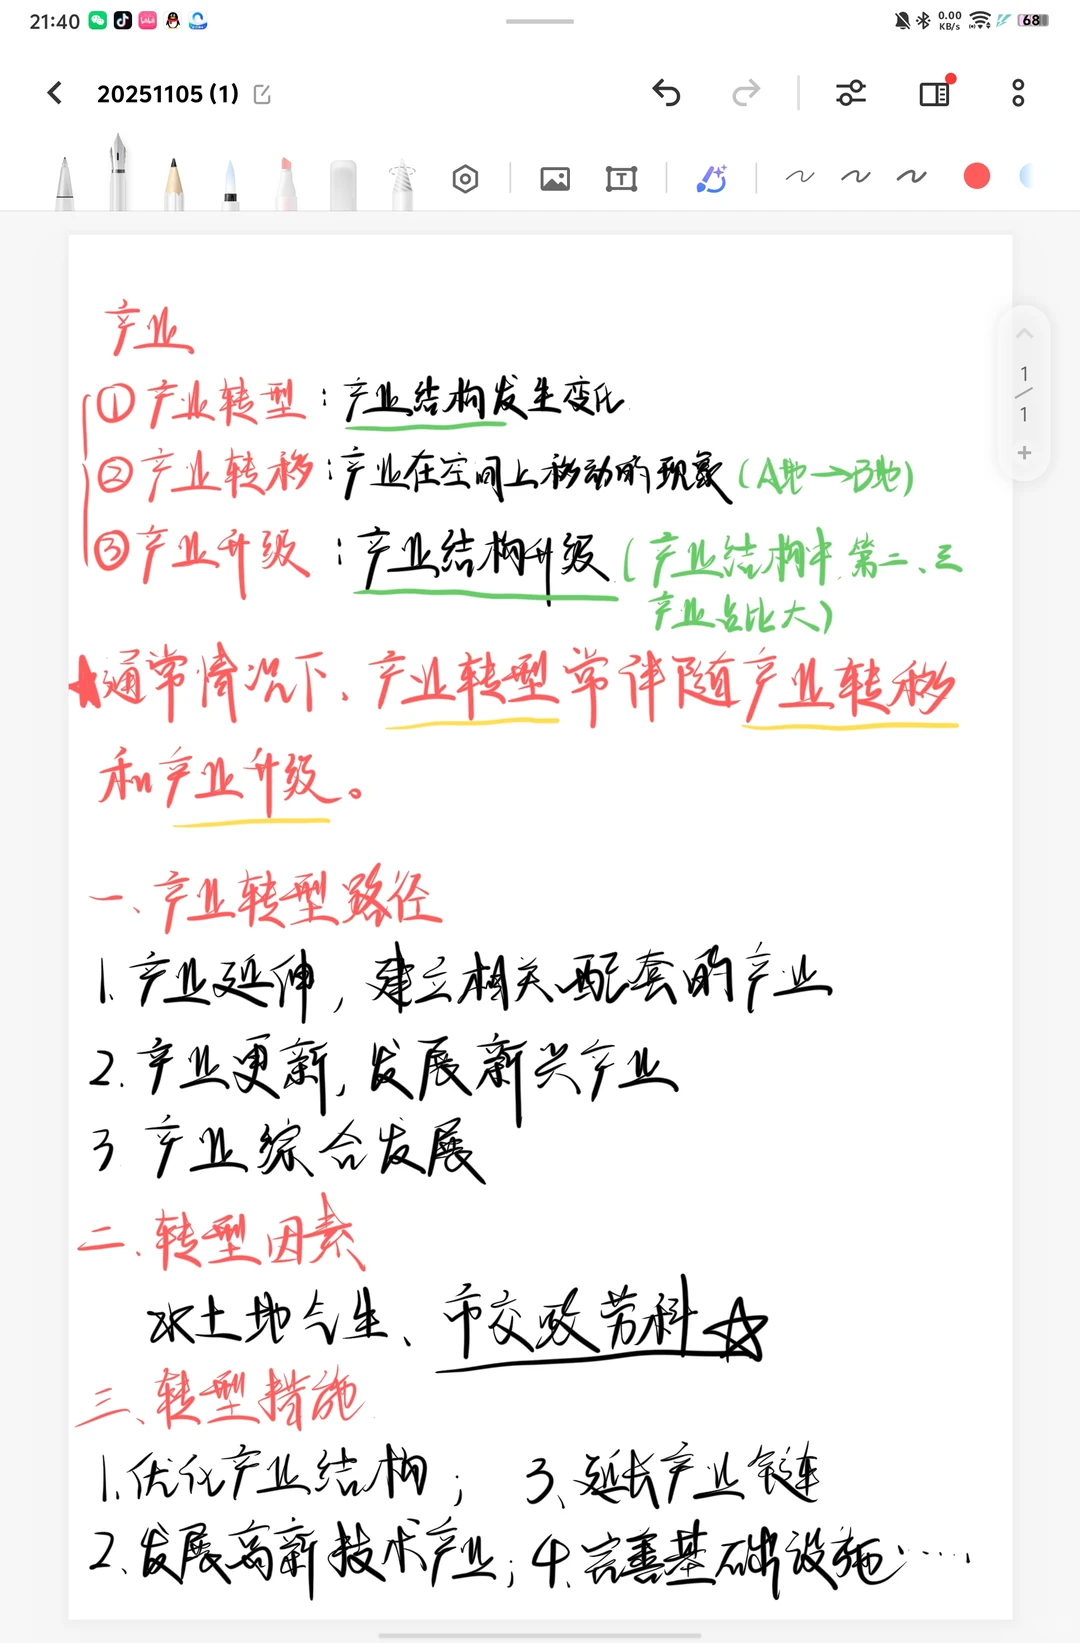 21:40
0.00 KB/s
68
20251105 (1)
产业
①产业转型：产业结构发生变化
②产业转移：产业在空间上移动的现象(A地→B地)
③产业升级：产业结构升级(产业结构中,第二、三
产业占比大)
★通常情况下、产业转型常伴随产业转移
和产业升级。
1
1
一、产业转型路径
1.产业延伸，建立相关配套的产业
2.产业更新,发展新兴产业
3.产业综合发展
二.转型因素
水土地气生、市交政劳科☆
三、转型措施
1.优化产业结构； 3、延长产业链
2.发展高新技术产业；4.完善基础设施……